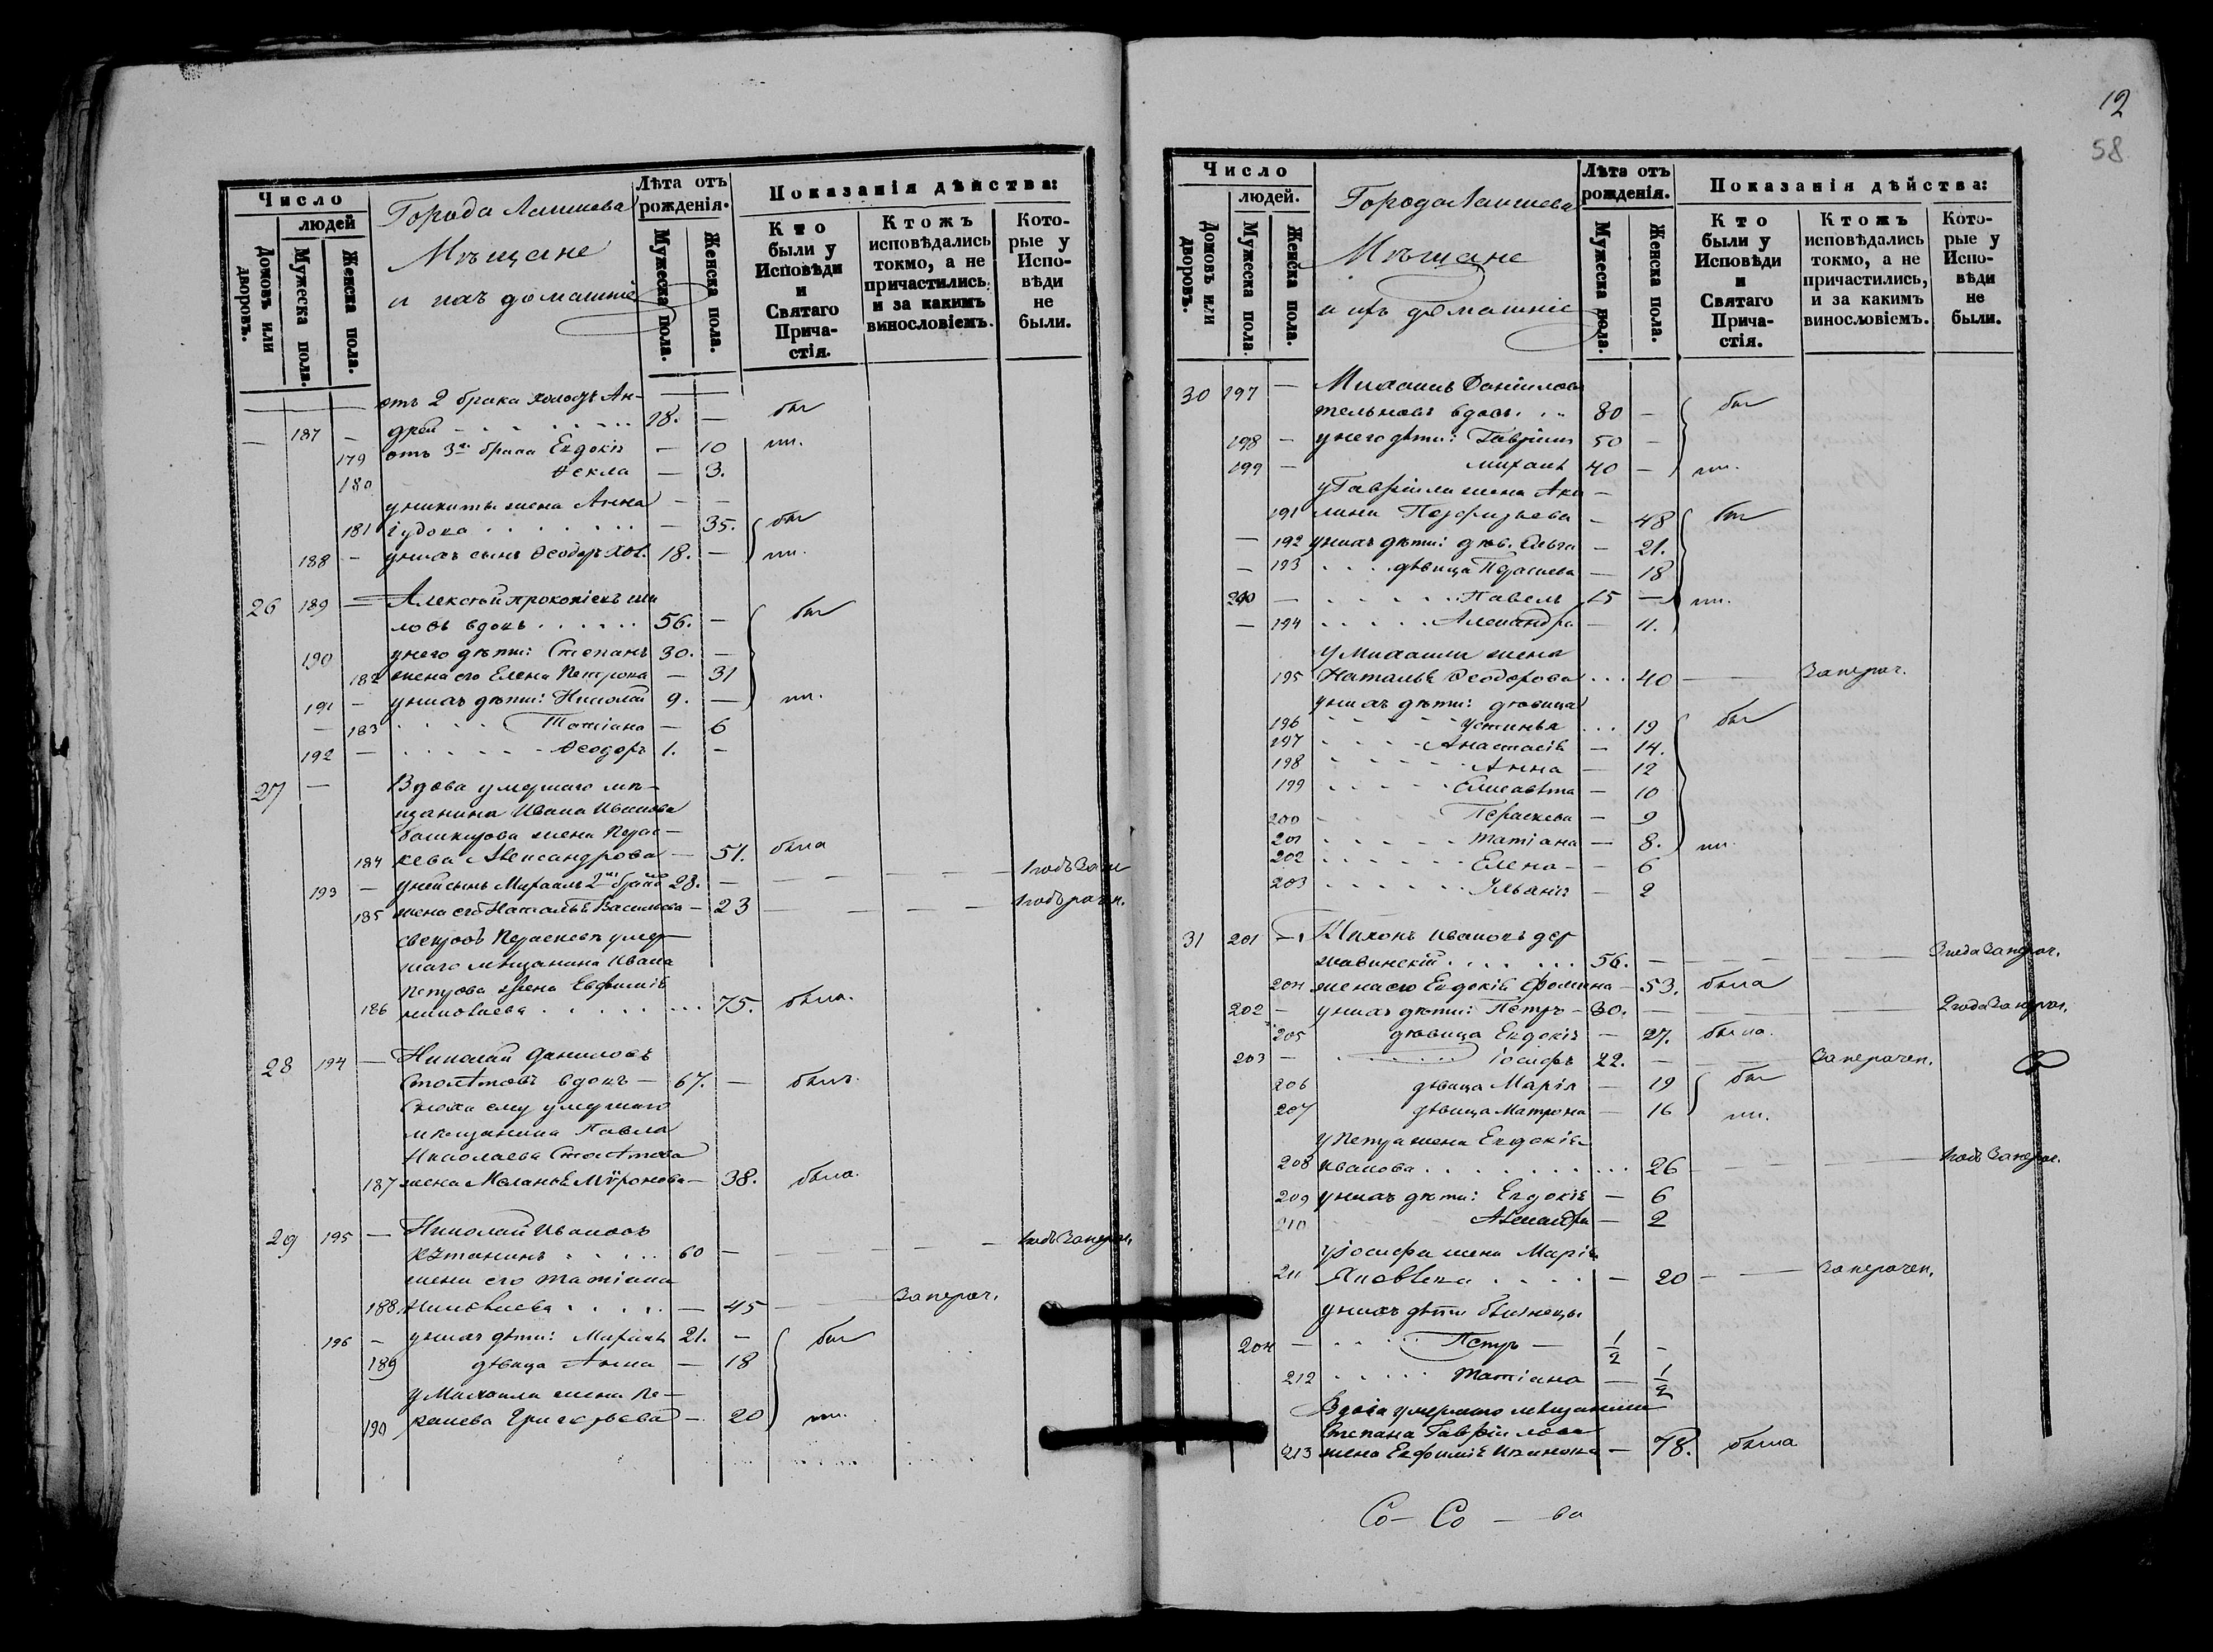 Число
людей
Домовъ или дворовъ.
Мужеска пола.
Женска пола.
Города Лаишева
Мѣщане
и ихъ домашніе
Лѣта отъ рожденія.
Мужеска пола.
Женска пола.
Показанія дѣйства:
Кто были у Исповѣди и Святаго Причастія.
Ктожъ исповѣдались токмо, а не причастились, и за какимъ винословіемъ.
Которые у Исповѣди не были.
отъ 2 брака холостъ Ан-
187 — дрей 28. — бы
179 отъ 3го брака Евдокія — 10 ли.
180 Ѳекла — 3.
у никиты жена Анна — —
181 — 35. бы
188 — у нихъ сынъ Ѳеодоръ хол. 18. — ли.
26 189 — Алексѣй прокопіевъ
вдовъ 56. — бы
190 у него дѣти: Степанъ 30. —
182 жена его Елена Петрова — 31
191 — у нихъ дѣти: Николай 9. — ли.
— 183 Татіана — 6
192 — Ѳеодоръ 1. —
27 — Вдова умершаго мѣ-
щанина Ивана Иванова
башкирова жена Парас-
184 кева Александрова — 51. была
193 — у ней сынъ Михаилъ 2мъ бракѣ 28. — 1 годъ
185 жена его Наталья Васильева — 23 1 годъ
свекровь Параскевы умер-
шаго мѣщанина Ивана
Петрова жена Евфимія
186 75. была.
28 194 — Николай Даниловъ
Столѣтовъ вдовъ — 67. — былъ.
Сноха ему умершаго
мѣщанина Павла
Николаева Столѣтова
187 жена Меланья Мѵронова — 38. была.
29 195 — Николай Ивановъ
60 — 1 годъ
жена его татіана
188. — 45
196 — у нихъ дѣти: Михаилъ 21. — бы
189 дѣвица Анна — 18
у Михаила жена Па-
190 раскева Григорьева — 20 ли.
12
58
Число
людей.
Домовъ или дворовъ.
Мужеска пола.
Женска пола.
Города Лаишева
Мѣщане
и ихъ домашніе
Лѣта отъ рожденія.
Мужеска пола.
Женска пола.
Показанія дѣйства:
Кто были у Исповѣди и Святаго Причастія.
Ктожъ исповѣдались токмо, а не причастились, и за какимъ винословіемъ.
Которые у Исповѣди не были.
30 197 — Михаилъ Даніиловъ
вдовъ 80 — бы
198 — у него дѣти: Гавріилъ 50 —
199 — михаилъ 40 — ли.
у Гавріила жена Аки —
191 лина Порфирьева — 48 бы
— 192 у нихъ дѣти: дѣв. Ольга — 21.
— 193 дѣвица Параскева — 18
200 — Павелъ 15 — ли.
— 194 Александра — 11.
у Михаила жена
195 Наталья Ѳеодорова 40
у нихъ дѣти: дѣвица
196 Устинья 19 бы
197 Анастасія — 14.
198 Анна — 12
199 Елисавета — 10
200 Параскева — 9
201 татіана — 8. ли.
202 Елена — 6
203 Ульянія — 2
31 201 — Тихонъ Ивановъ дер
жавинскій 56. — 3 года
204 жена его Евдокія Фомина — 53. была
202 — у нихъ дѣти: Петръ — 30. — 2 года
205 дѣвица Евдокія — 27. была.
203 — іосифъ 22. —
206 дѣвица Марія — 19 бы
207 дѣвица Матрона — 16 ли.
у Петра жена Евдокія
208 Иванова 26 1 годъ
209 у нихъ дѣти: Евдокія — 6
210 Александра — 2
у іосифа жена Марія
211 Яковлева — 20
у нихъ дѣти близнецы
204 — Петръ — 1/2 —
212 татіана — 1/2
Вдова умершаго мѣщанина
Степана Гаврилова
213 жена Евфимія Иванова — 78. была
Со- Со — ва